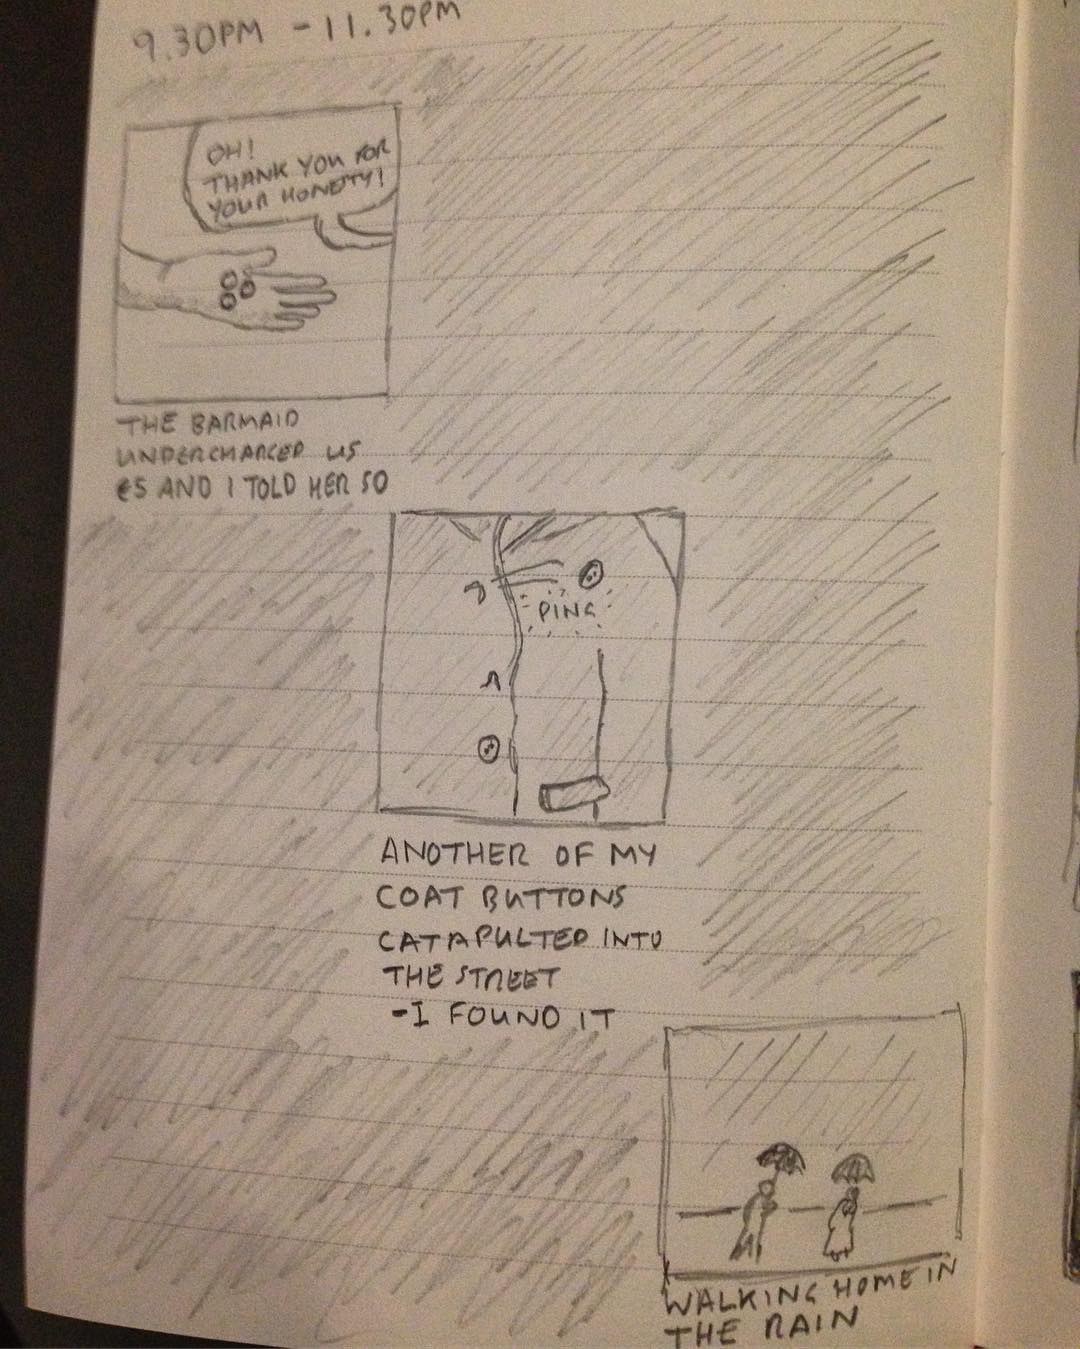 9.30PM - 11.30PM
OH!
THANK YOU FOR
YOUR HONESTY!
THE BARMAID
UNDERCHARGED US
£5 AND I TOLD HER SO
PING
ANOTHER OF MY
COAT BUTTONS
CATAPULTED INTO
THE STREET
-I FOUND IT
WALKING HOME IN
THE RAIN